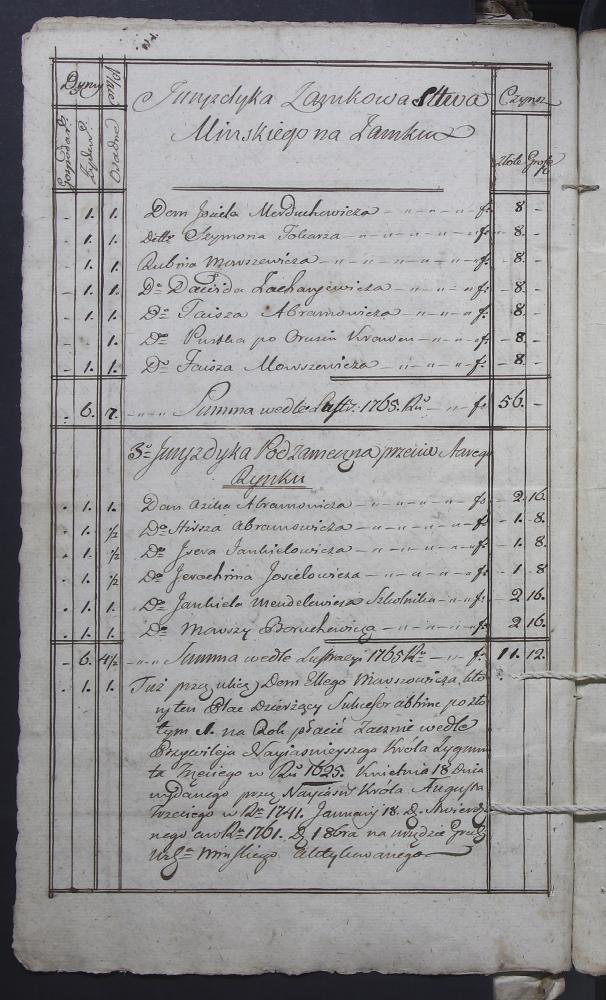 Dymy Place Juryzdyka Zamkowa Sttwa Czynsz
Mińskiego na Zamku
Gospodar: Żydows: Osadne Złote Grosze
- 1. 1. Dom Josiela Merduchowicza - f. 8. -
- 1. 1. Ditto Szymona Tokarza - f. 8. -
- 1. 1. Rubina Mowszewicza - f. 8. -
- 1. 1. Do Dawida Zacharyewicza - f. 8. -
- 1. 1. Do Faisza Abramowicza - f. 8. -
- 1. Do Pustka po - f. 8. -
- 1. 1. Do Faisza Mowszewicza - f. 8. -
. 6. 7. Summa wedle Lustr: 1765. Ru - f. 56. -
3o Juryzdyka Podzameczna przeciw Starego
Rynku
. 1. 1. Dom Abramowicza - f. 2. 16.
. 1. 1/2 Do Hirsza Abramowicza - f. 1. 8.
. 1. 1/2 Do Jankielowicza - f. 1. 8.
. 1. 1/2 Do Jerachima Josielowicza - f. 1. 8
. 1. 1. Do Jankiela Mendelewicza Szkolnika - f. 2 16.
. 1. 1. Do Mowszy Boruchowicza - f. 2 16.
- 6. 4 1/2 Summa wedle Lustracyi 1765 Ru - f. 11. 12.
. 1. 1. Tuż przy ulicy Dom Mowszowicza, kto-
ry ten Plac Dzierżący Sukcesor abhinc po zło-
tym 1. na Rok płacić Zacznie wedle
Przywileja Nayiasnieyszego Króla Zygmun-
ta Trzeciego w Ru 1625. Kwietnia 18 Dnia
wydanego przez Nayiaśń Króla Augusta
Trzeciego w Ru 1741. January 18. D. Stwierdzo-
nego a w Ru 1761. D 18bra na urzędzie Grodz
Mińskiego Aktykowanego